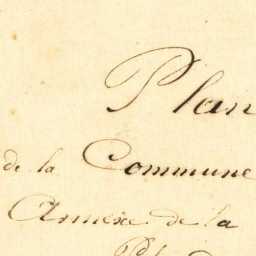 Plan
de la Commune
Annexe de la